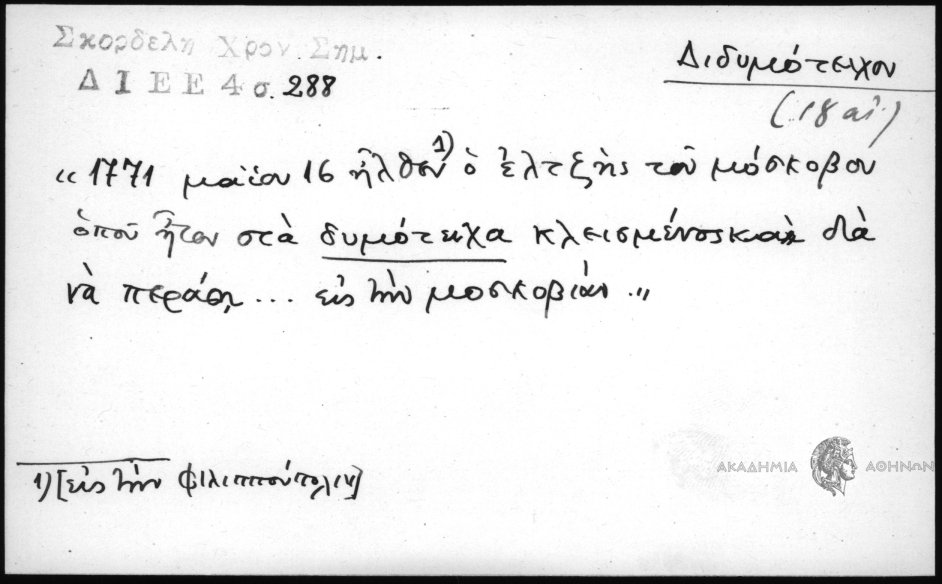 Σκορδελη Χρον. Σημ.
Διδυμότειχον
Δ Ι Ε Ε 4 σ. 288
(18 αἰ)
“ 1771 μαΐου 16 ἦλθεν 1) ὁ ἐλτζῆς τοῦ μόσκοβου
ὁποῦ ἦτον στὰ δυμότειχα κλεισμένος καὶ διὰ
νὰ περάσῃ ... εἰς τὴν μοσκοβίαν .„
ΑΚΑΔΗΜΙΑ ΑΘΗΝΩΝ
1) [εἰς τὴν Φιλιππούπολιν]